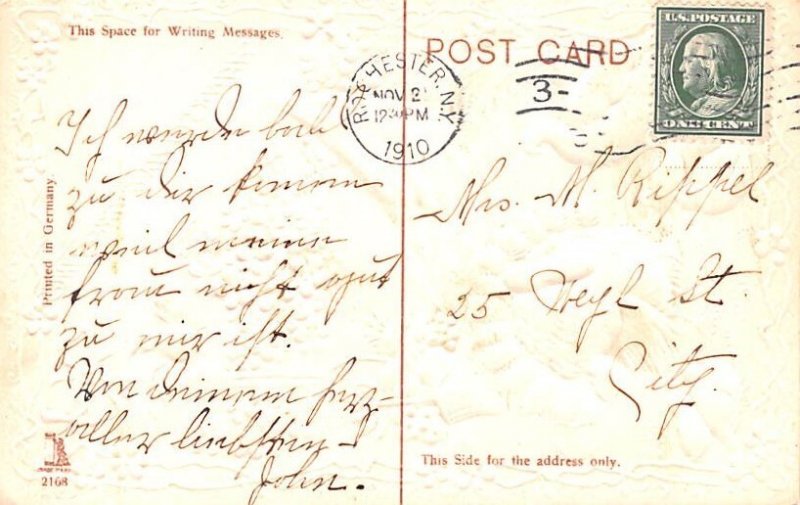 This Space for Writing Messages.
Ich werde bald
zu dir komen
weil meine
frau nicht gut
zu mir ist.
Von deinem herz-
aller liebsten
John.
Printed in Germany
TRADE MARK
2168
POST CARD
ROCHESTER, N.Y.
NOV 2
12 30 PM
1910
3-
U.S. POSTAGE
ONE CENT
Mrs. M. Rippel
25 Weyl St.
City.
This Side for the address only.